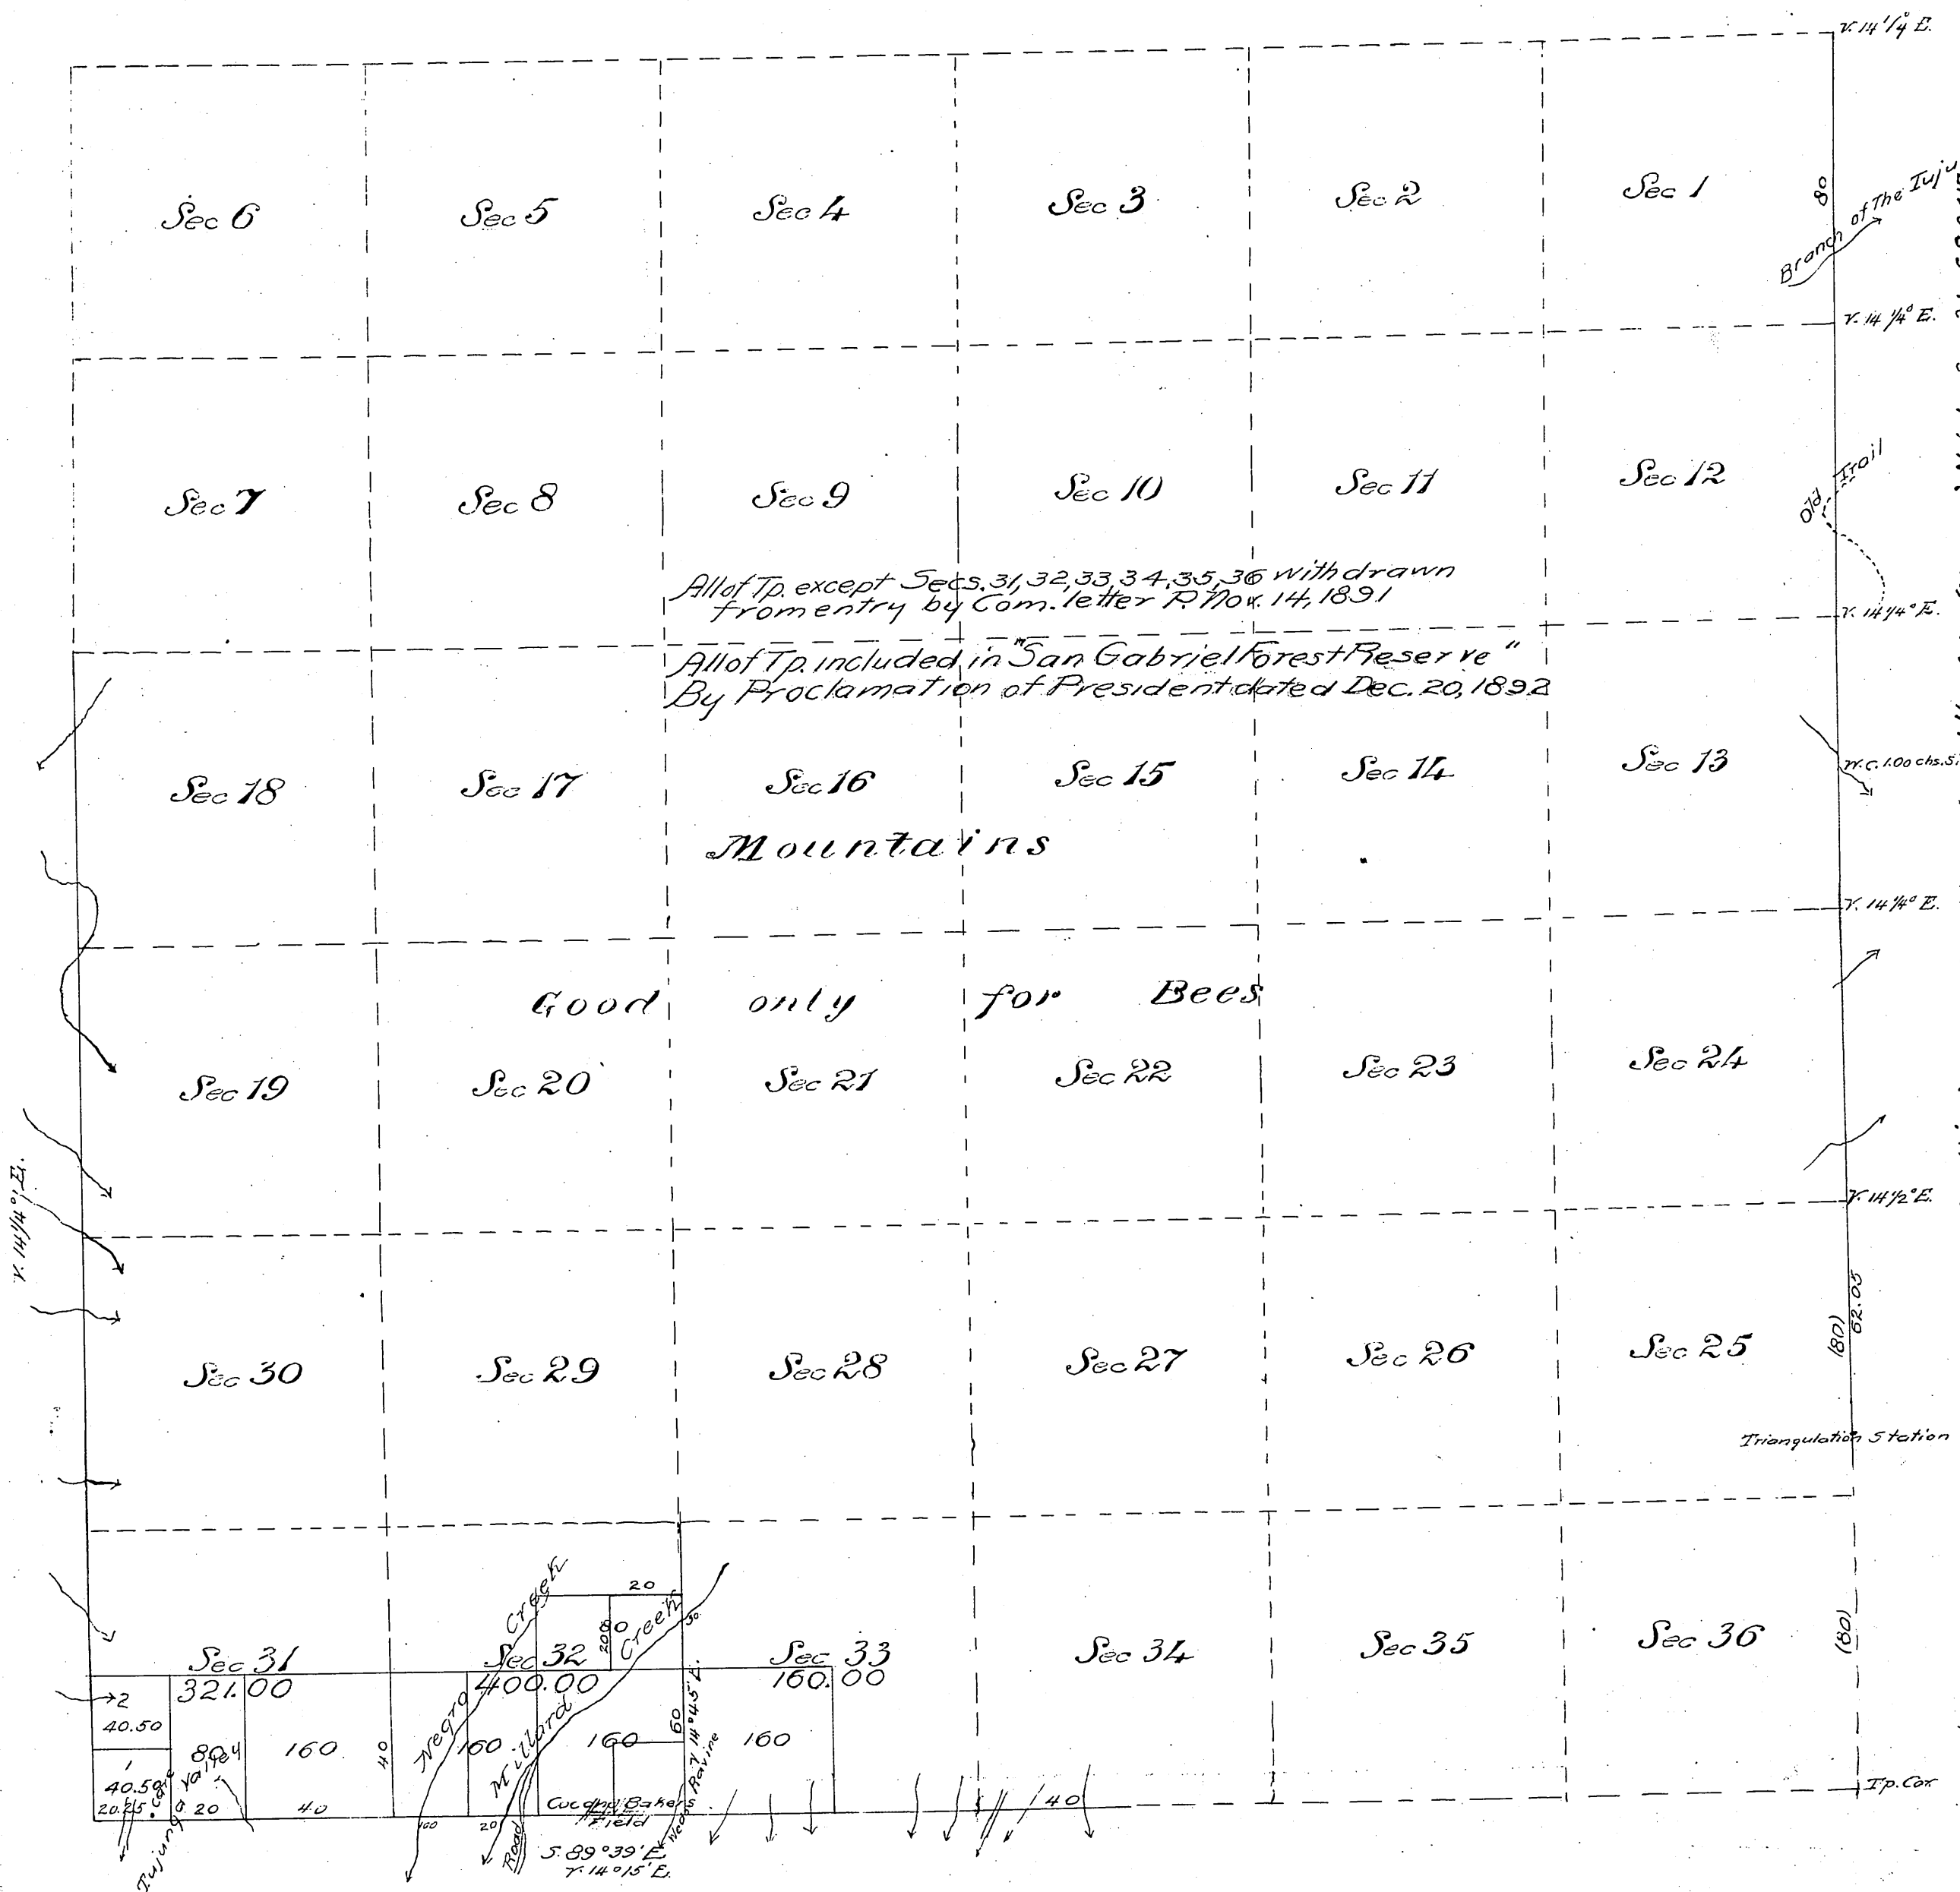 V. 14 1/4° E.
Sec 6
Sec 5
Sec 4
Sec 3
Sec 2
Sec 1
80
Branch of The Tuju
V. 14 1/4° E.
Sec 7
Sec 8
Sec 9
Sec 10
Sec 11
Sec 12
Old Trail
All of Tp. except Secs. 31, 32, 33, 34, 35, 36 withdrawn
from entry by Com. letter P. Nov. 14, 1891
V. 14 1/4° E.
All of Tp. included in "San Gabriel Forest Reserve"
By Proclamation of President dated Dec. 20, 1892
Sec 18
Sec 17
Sec 16
Sec 15
Sec 14
Sec 13
W.C. 1.00 chs. S.
Mountains
V. 14 1/4° E.
Good only for Bees
Sec 19
Sec 20
Sec 21
Sec 22
Sec 23
Sec 24
V. 14 1/4° E.
V. 14 1/2° E.
Sec 30
Sec 29
Sec 28
Sec 27
Sec 26
Sec 25
(80)
62.05
Triangulation Station
Sec 31
Sec 32
Sec 33
Sec 34
Sec 35
Sec 36
(80)
321.00
400.00
160.00
Negro Creek
Millard Creek
20
80
20
30
2
40.50
1
40.50
20.25
80
20
160
40
40
160
160
60
V. 14° 45' E.
160
Ravine
Tujunga Valley
Road
160
20
Cuc and Bakers
Field
S. 89° 39' E.
V. 14° 15' E.
140
Tp. Cor.